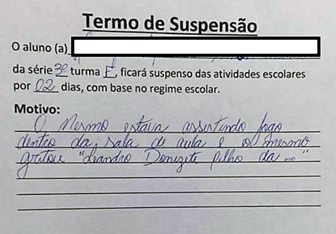 Termo de Suspensão
O aluno (a)
da série 3º turma E, ficará suspenso das atividades escolares
por 02 dias, com base no regime escolar.
Motivo:
O Mesmo estava assistindo jogo
dentro da sala de aula e o mesmo
gritou "Leandro Donizete filho da..."